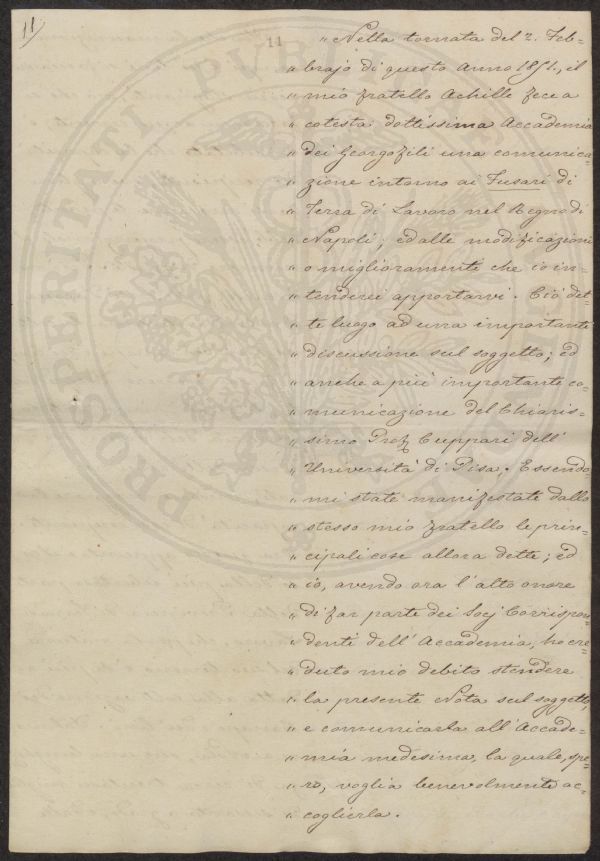 11
11
„ Nella tornata del 2. Feb-
„ brajo di questo Anno 1851., il
„ mio fratello Achille fece a
„ cotesta dottissima Accademia
„ dei Georgofili una comunica-
„ zione intorno ai Fusari di
„ Terra di Lavoro nel Regno di
„ Napoli; ed alle modificazioni
„ o miglioramente che io in-
„ tenderei apportarvi. Ciò det-
„ te luogo ad una importante
„ discussione sul soggetto; ed
„ anche a più importante co-
„ municazione del Chiaris-
„ simo Prof. Cuppari dell'
„ Università di Pisa. Essendo-
„ mi state manifestate dallo
„ stesso mio fratello le prin-
„ cipali cose allora dette; ed
„ io, avendo ora l'alto onore
„ di far parte dei Socj Corrispon-
„ denti dell'Accademia, ho cre-
„ duto mio debito stendere
„ la presente Nota sul soggetto,
„ e comunicarla all'Accade-
„ mia medesima, la quale, spe-
„ ro, voglia benevolmente ac-
„ coglierla.
PROSPERITATI PUB